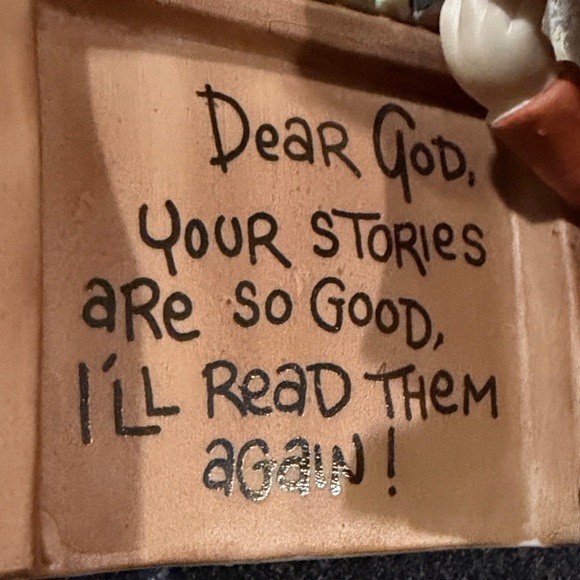 Dear God,
Your stories
are so good,
I'll read them
again!